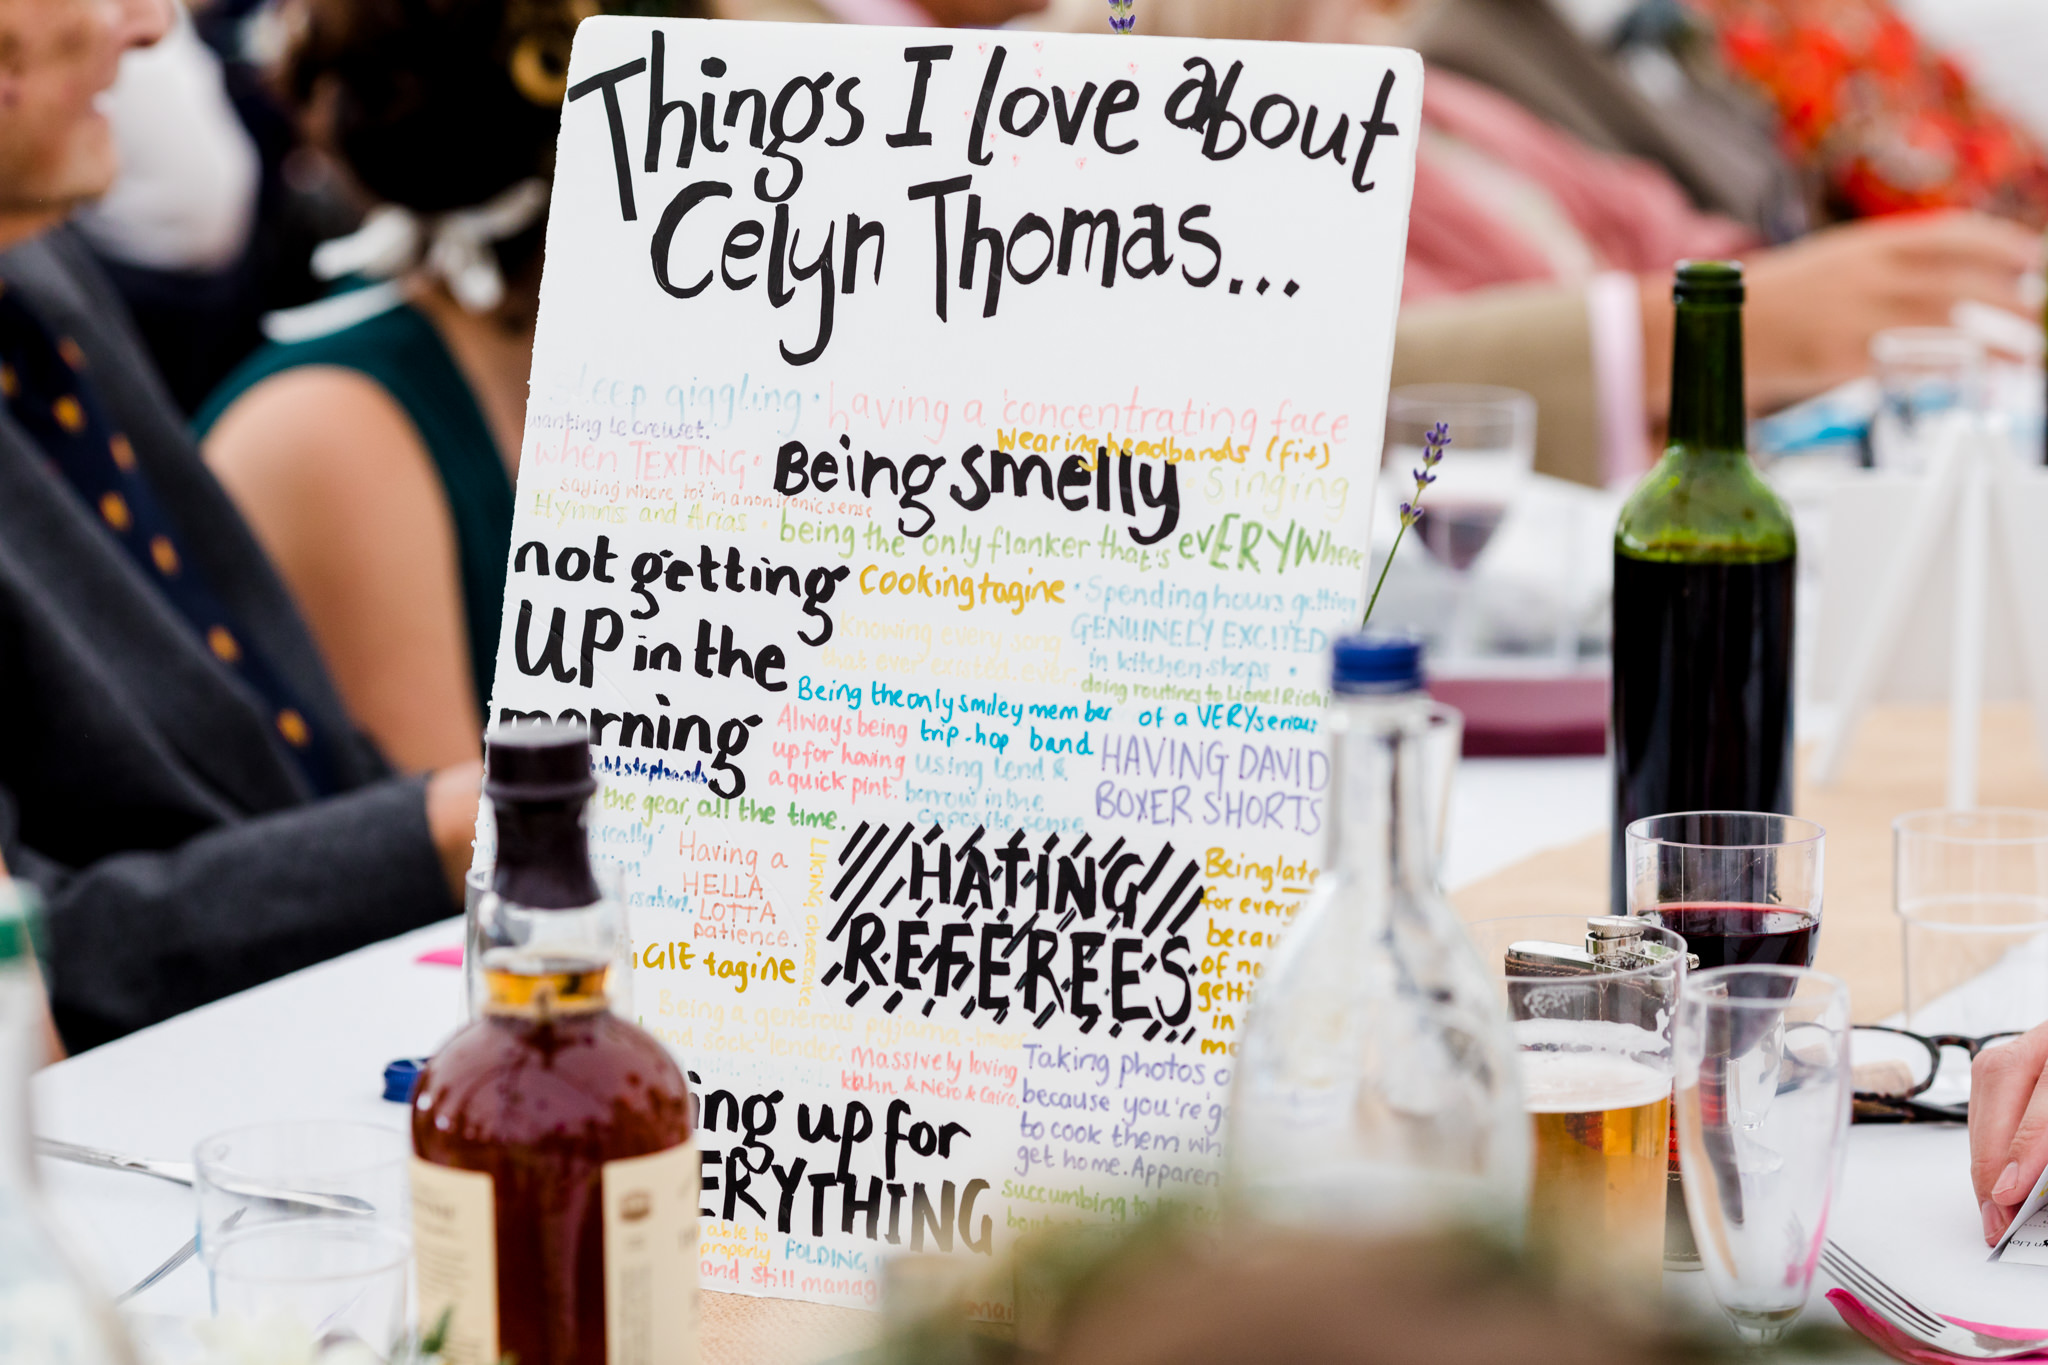 Things I love about
Celyn Thomas...
giggling · having a concentrating face
wanting Le Creuset.
wearing headbands (fit)
when TEXTING ·
Being smelly
· Singing
saying where to? in a non ironic sense
Hymns and Arias ·
being the only flanker that's evERYWhere
not getting
UP in the
morning
Cooking tagine
· Spending hours getting
GENUINELY EXCITED
in kitchen shops ·
Knowing every song
that ever existed. ever.
doing routines to Lionel Richi
Being the only smiley member of a VERY serious
trip-hop band
Always being
up for having
a quick pint.
using lend &
borrow in the
opposite sense
HAVING DAVID
BOXER SHORTS
the gear, all the time.
Having a
HELLA
LOTTA
patience.
LIKING
HATING
REFEREES
Being late
for every
becau
of no
getti
in
mo
tagine
Being a generous pyjama-
and sock lender.
Massively loving
Kahn & Nero & Cairo.
Taking photos o
because you're go
to cook them wh
get home. Apparen
ing up for
ERYTHING
succumbing to
able to
properly
FOLDING
and still manag